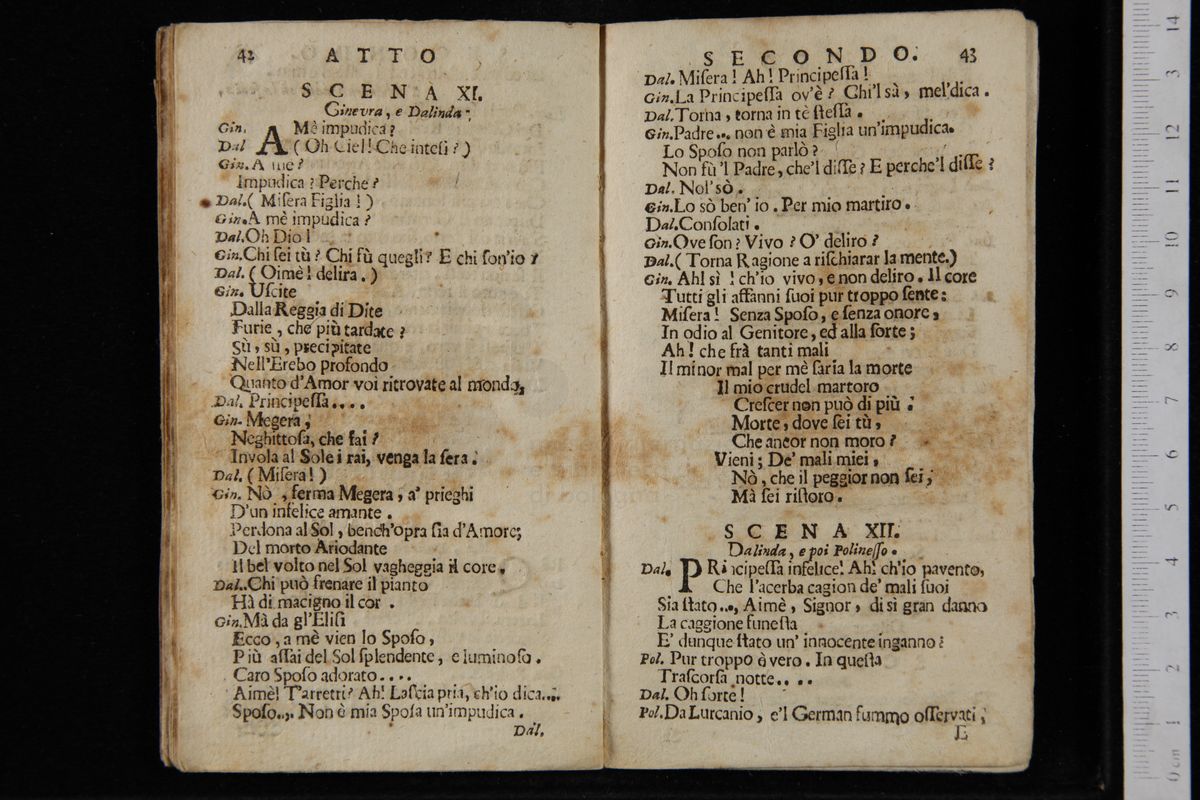 42 ATTO
SCENA XI.
Ginevra, e Dalinda.
Gin. A Mè impudica?
Dal (Oh Ciel! Che intesi?)
Gin. A me?
Impudica? Perche?
Dal. (Misera Figlia!)
Gin. A mè impudica?
Dal. Oh Dio!
Gin. Chi sei tù? Chi fù quegli? E chi son'io?
Dal. (Oimè! delira.)
Gin. Uscite
Dalla Reggia di Dite
Furie, che più tardate?
Sù, sù, precipitate
Nell'Erebo profondo
Quanto d'Amor voi ritrovate al mondo,
Dal. Principessa....
Gin. Megera,
Neghittosa, che fai?
Invola al Sole i rai, venga la sera.
Dal. (Misera!)
Gin. Nò, ferma Megera, a' prieghi
D'un infelice amante.
Perdona al Sol, bench'opra sia d'Amore;
Del morto Ariodante
Il bel volto nel Sol vagheggia il core.
Dal. Chi può frenare il pianto
Hà di macigno il cor.
Gin. Mà da gl'Elisi
Ecco, a mè vien lo Sposo,
Più assai del Sol splendente, e luminoso.
Caro Sposo adorato....
Aimè! T'arretri? Ah! Lascia pria, ch'io dica....
Sposo... Non è mia Sposa un'impudica.
Dal.
SECONDO. 43
Dal. Misera! Ah! Principessa!
Gin. La Principessa ov'è? Chi'l sà, mel'dica.
Dal. Torna, torna in tè stessa.
Gin. Padre... non è mia Figlia un'impudica.
Lo Sposo non parlò?
Non fù 'l Padre, che'l disse? E perche'l disse?
Dal. Nol'sò.
Gin. Lo sò ben' io. Per mio martiro.
Dal. Consolati.
Gin. Ove son? Vivo? O' deliro?
Dal. (Torna Ragione a rischiarar la mente.)
Gin. Ah! sì! ch'io vivo, e non deliro. Il core
Tutti gli affanni suoi pur troppo sente:
Misera! Senza Sposo, e senza onore,
In odio al Genitore, ed alla sorte;
Ah! che frà tanti mali
Il minor mal per mè saria la morte
Il mio crudel martoro
Crescer non può di più:
Morte, dove sei tù,
Che ancor non moro?
Vieni; De' mali miei,
Nò, che il peggior non sei,
Mà sei ristoro.
SCENA XII.
Dalinda, e poi Polinesso.
Dal. PRincipessa infelice! Ah! ch'io pavento,
Che l'acerba cagion de' mali suoi
Sia stato..., Aimè, Signor, di sì gran danno
La caggione funesta
E' dunque stato un' innocente inganno?
Pol. Pur troppo è vero. In questa
Trascorsa notte....
Dal. Oh sorte!
Pol. Da Lurcanio, e'l German fummo osservati;
E